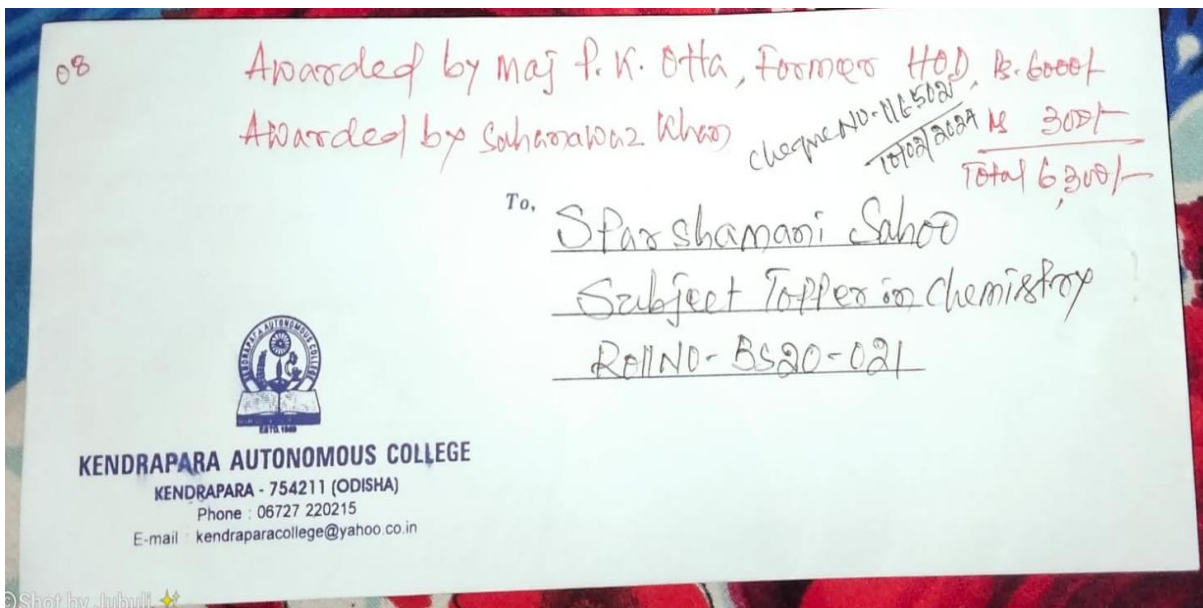 08
Awarded by Maj P. K. Otta, Former HOD Rs. 6000/-
Awarded by Saharawaz Khan Rs 300/-
Cheque NO-
10/02/2024
Total 6,300/-
To,
Sparshamani Sahoo
Subject Topper in Chemistry
Roll NO- BS20-021
KENDRAPARA AUTONOMOUS COLLEGE
ESTD. 1960
KENDRAPARA AUTONOMOUS COLLEGE
KENDRAPARA - 754211 (ODISHA)
Phone : 06727 220215
E-mail : kendraparacollege@yahoo.co.in
Shot by Jubuli